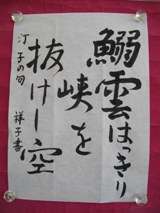 鰯雲はっきり
峡を
抜けし空
汀子の句
祥子書